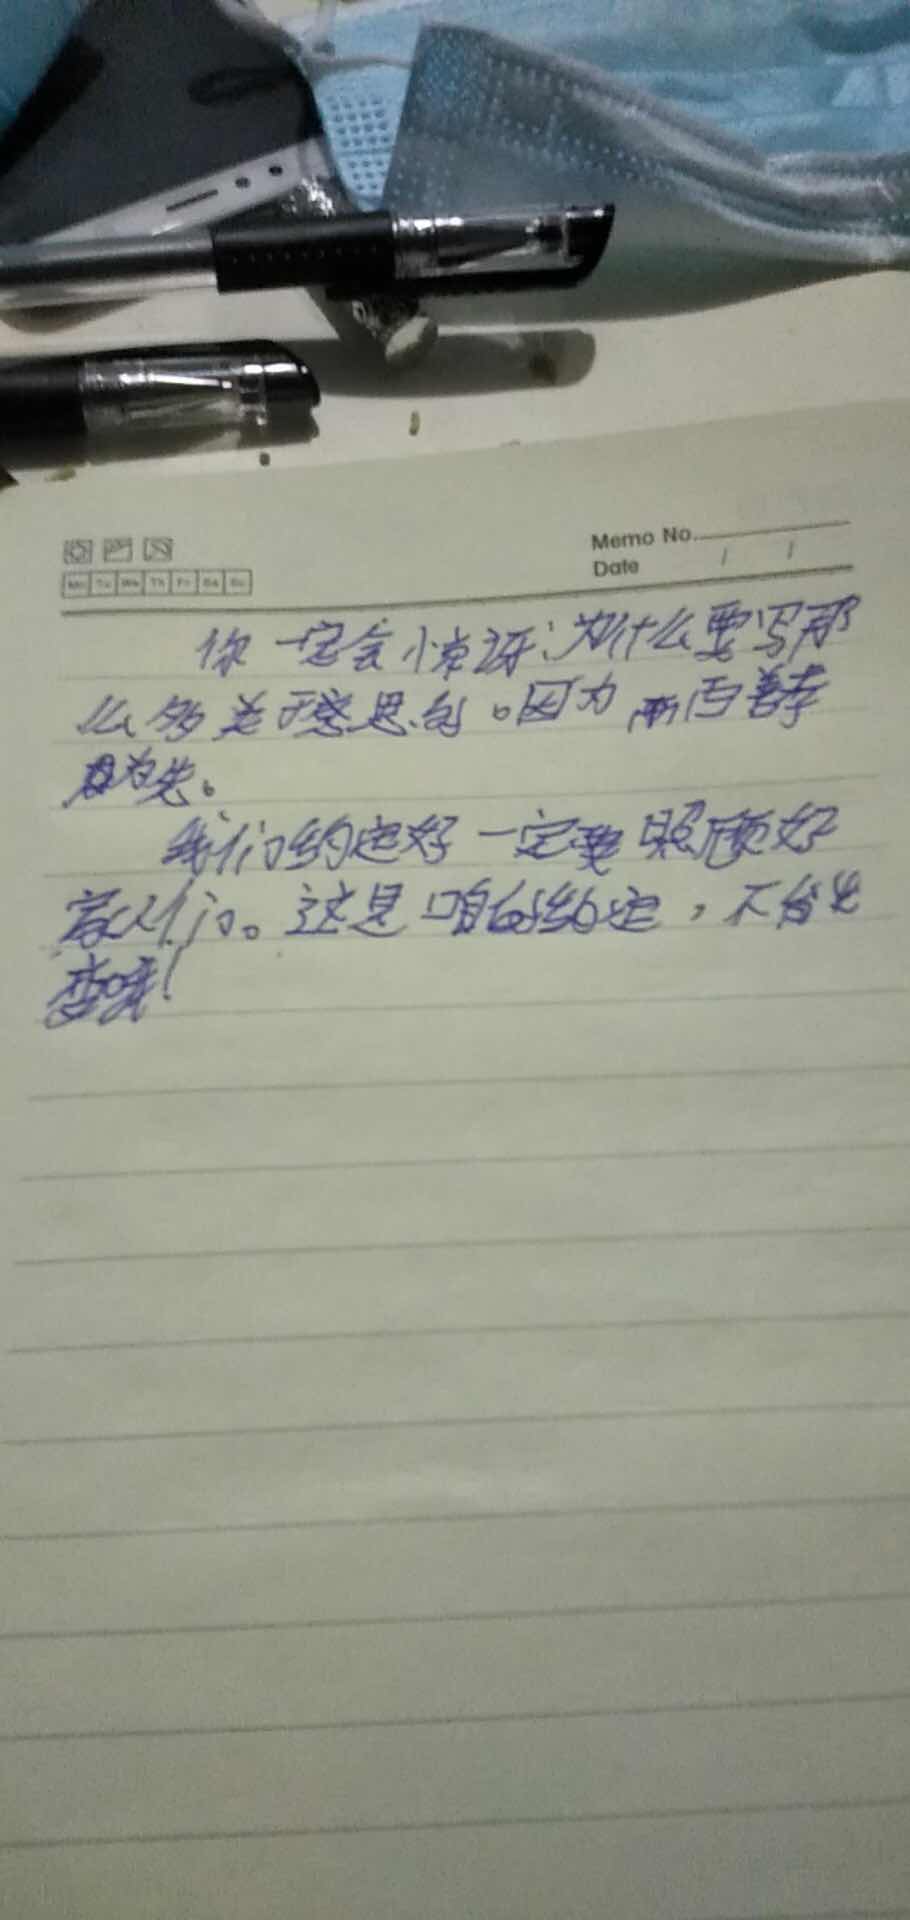 Memo No.
Date / /
Mo Tu We Th Fr Sa Su
你一定会惊讶:为什么要写那
么多关于感恩的。因为 百善孝
为先。
我们约定好一定要照顾好
家人们。这是咱的约定,不能
变哦!